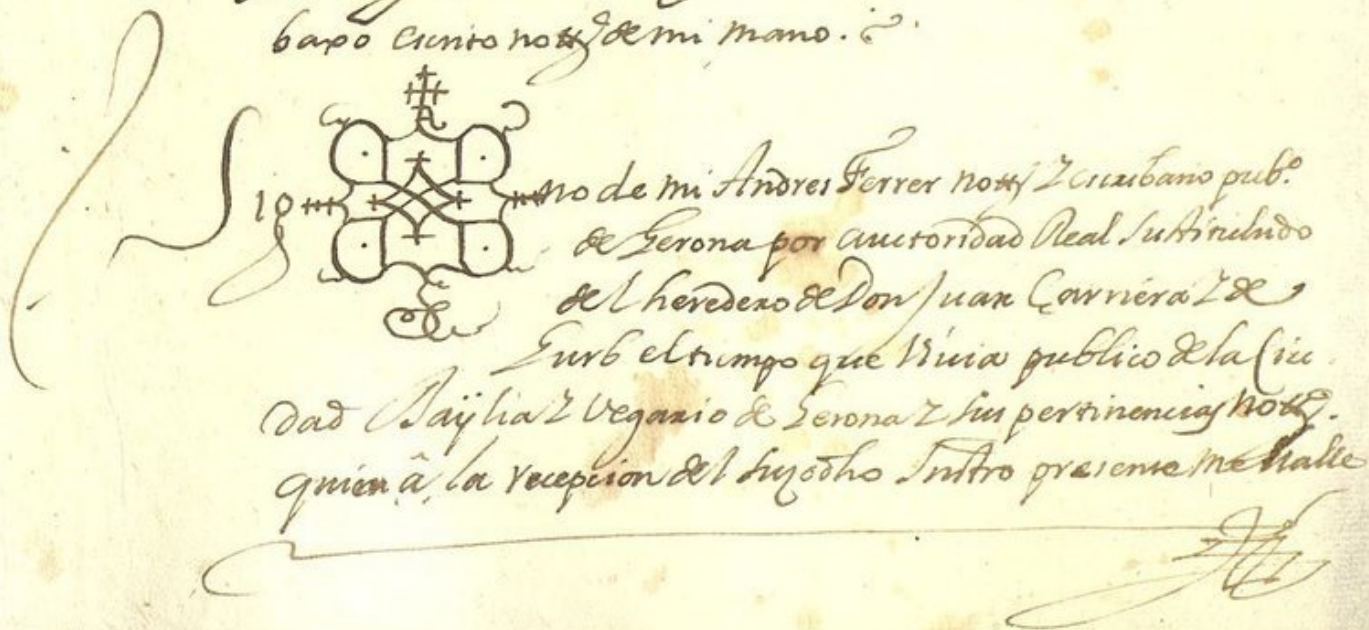 baxo escrito nott.º de mi mano.
Sig no de mi Andres Ferrer nott.º y escribano pub.º
de Gerona por auctoridad Real sustituhido
del heredero de Don Juan Çarriera y de
Gurb el tiempo que vivia publico de la Ciu
dad Baÿlia y Vegario de Gerona y sus pertinencias nott.º
quien â la recepcion del suzodho Instro presente me halle